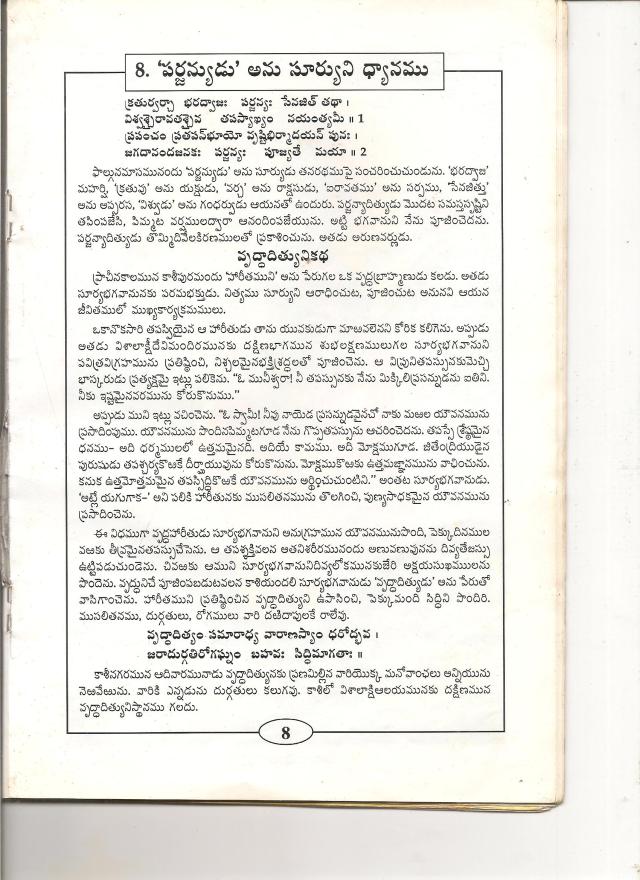 8. 'పర్జన్యుడు' అను సూర్యుని ధ్యానము
క్రతుర్వర్చా భరద్వాజః పర్జన్యః సేనజిత్ తథా ।
విశ్వశ్చైరావతశ్చైవ తపస్యాఖ్యం నయంత్యమీ ॥ 1
ప్రపంచం ప్రతపన్‌భూయో వృష్టిభిర్మాదయన్ పునః ।
జగదానందజనకః పర్జన్యః పూజ్యతే మయా ॥ 2
ఫాల్గునమాసమునందు 'పర్జన్యుడు' అను సూర్యుడు తనరథముపై సంచరించుచుండును. 'భరద్వాజ'
మహర్షి, 'క్రతువు' అను యక్షుడు, 'వర్చ' అను రాక్షసుడు, 'ఐరావతము' అను సర్పము, 'సేనజిత్తు'
అను అప్సరస, 'విశ్వుడు' అను గంధర్వుడు ఆయనతో ఉందురు. పర్జన్యాదిత్యుడు మొదట సమస్తసృష్టిని
తపింపజేసి, పిమ్మట వర్షములద్వారా ఆనందింపజేయును. అట్టి భగవానుని నేను పూజించెదను.
పర్జన్యాదిత్యుడు తొమ్మిదివేలకిరణములతో ప్రకాశించును. అతడు అరుణవర్ణుడు.
వృద్ధాదిత్యునికథ
ప్రాచీనకాలమున కాశీపురమందు 'హారీతముని' అను పేరుగల ఒక వృద్ధబ్రాహ్మణుడు కలడు. అతడు
సూర్యభగవానునకు పరమభక్తుడు. నిత్యము సూర్యుని ఆరాధించుట, పూజించుట అనునవి ఆయన
జీవితములో ముఖ్యకార్యక్రమములు.
ఒకానొకసారి తపస్వియైన ఆ హారీతుడు తాను యువకుడుగా మాఱవలెనని కోరిక కలిగెను. అప్పుడు
అతడు విశాలాక్షీదేవిమందిరమునకు దక్షిణభాగమున శుభలక్షణములుగల సూర్యభగవానుని
పవిత్రవిగ్రహమును ప్రతిష్ఠించి, నిశ్చలమైనభక్తిశ్రద్ధలతో పూజించెను. ఆ విప్రునితపస్సునకుమెచ్చి
భాస్కరుడు ప్రత్యక్షమై ఇట్లు పలికెను. "ఓ మునీశ్వరా! నీ తపస్సునకు నేను మిక్కిలిప్రసన్నుడను ఐతిని.
నీకు ఇష్టమైనవరమును కోరుకొనుము."
అప్పుడు ముని ఇట్లు వచించెను. "ఓ స్వామీ! నీవు నాయెడ ప్రసన్నుడవైనచో నాకు మఱల యౌవనమును
ప్రసాదింపుము. యౌవనమును పొందినపిమ్మటగూడ నేను గొప్పతపస్సును ఆచరించెదను. తపస్సే శ్రేష్ఠమైన
ధనము– అది ధర్మములలో ఉత్తమమైనది. అదియే కామము. అది మోక్షముగూడ. జితేంద్రియుడైన
పురుషుడు తపశ్చర్యకొఱకే దీర్ఘాయువును కోరుకొనును. మోక్షముకొఱకు ఉత్తమజ్ఞానమును వాంఛించును.
కనుక ఉత్తమోత్తమమైన తపస్సిద్ధికొఱకే యౌవనమును అర్థించుచుంటిని." అంతట సూర్యభగవానుడు.
'అట్లే యగుగాక–' అని పలికి హారీతునకు ముసలితనమును తొలగించి, పుణ్యసాధకమైన యౌవనమును
ప్రసాదించెను.
ఈ విధముగా వృద్ధహారీతుడు సూర్యభగవానుని అనుగ్రహమున యౌవనమునుపొంది, పెక్కుదినముల
వఱకు తీవ్రమైనతపస్సుచేసెను. ఆ తపశ్శక్తివలన అతనిశరీరమునందు అణువణువునను దివ్యతేజస్సు
ఉట్టిపడుచుండెను. చివఱకు ఆముని సూర్యభగవానునిదివ్యలోకమునకుజేరి అక్షయసుఖములను
పొందెను. వృద్ధునిచే పూజింపబడుటవలన కాశియందలి సూర్యభగవానుడు 'వృద్ధాదిత్యుడు' అను పేరుతో
వాసిగాంచెను. హారీతముని ప్రతిష్ఠించిన వృద్ధాదిత్యుని ఉపాసించి, పెక్కుమంది సిద్ధిని పొందిరి.
ముసలితనము, దుర్గతులు, రోగములు వారి దఱిదాపులకే రాలేవు.
వృద్ధాదిత్యం సమారాధ్య వారాణస్యాం ధరోద్భవ ।
జరాదుర్గతిరోగఘ్నం బహవః సిద్ధిమాగతాః ॥
కాశీనగరమున ఆదివారమునాడు వృద్ధాదిత్యునకు ప్రణమిల్లిన వారియొక్క మనోవాంఛలు అన్నియును
నెఱవేఱును. వారికి ఎన్నడును దుర్గతులు కలుగవు. కాశిలో విశాలాక్షిఆలయమునకు దక్షిణమున
వృద్ధాదిత్యునిస్థానము గలదు.
8